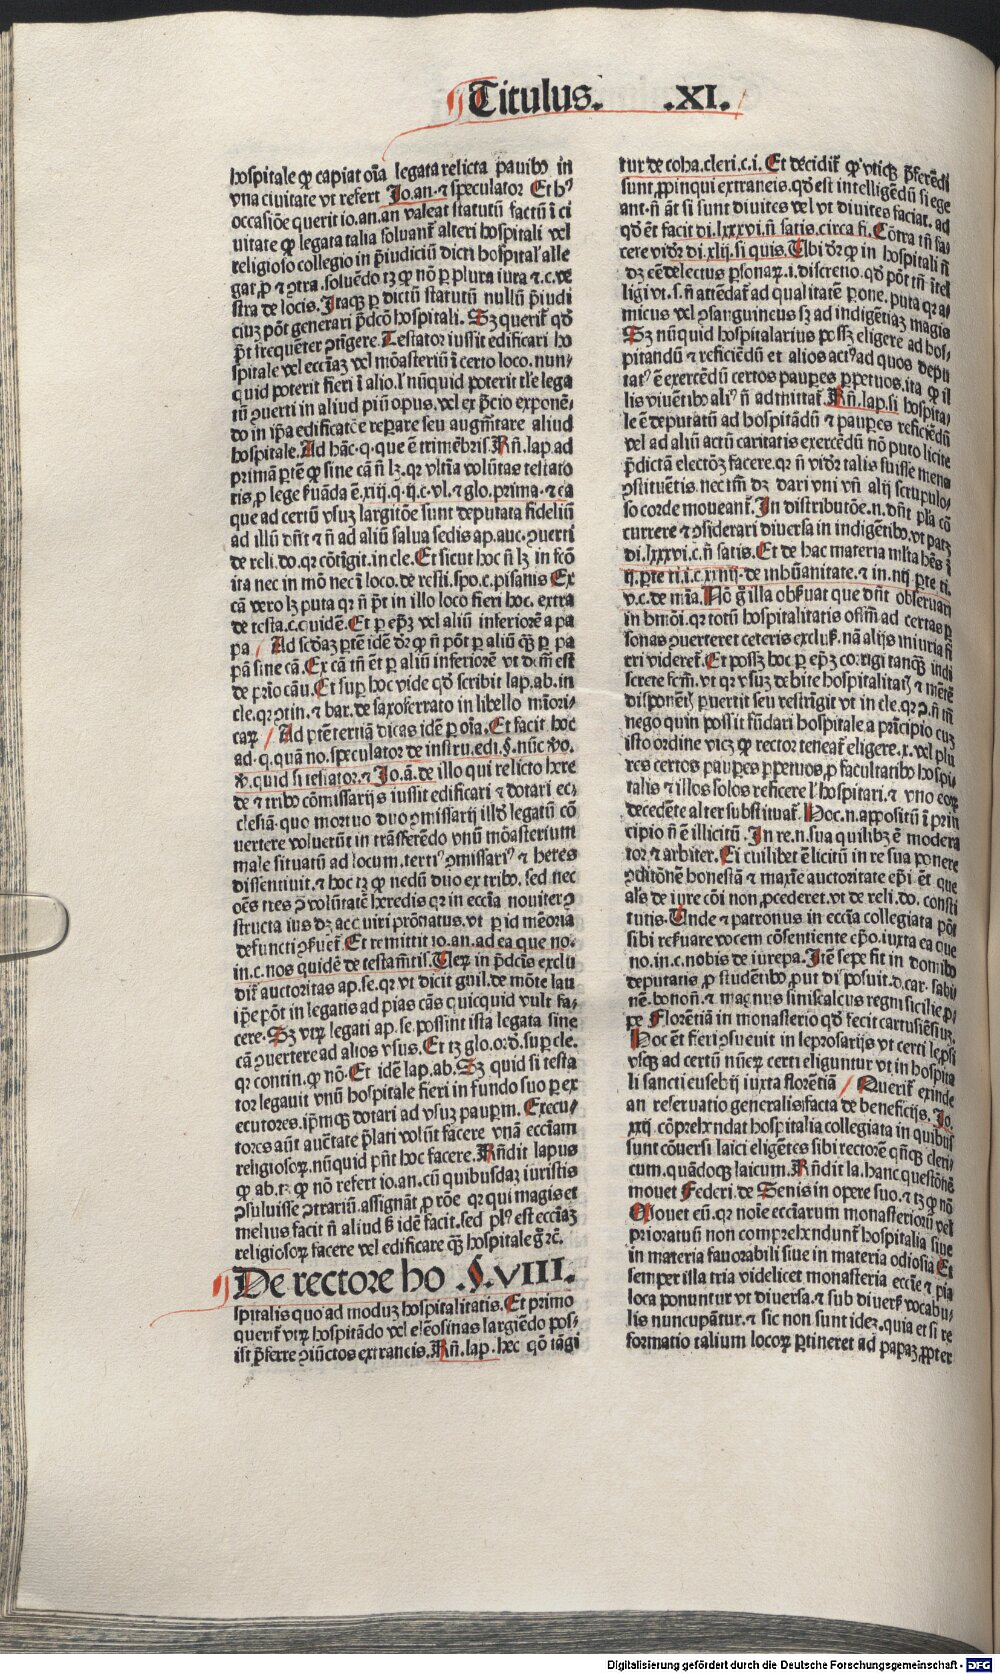 Titulus. .XI.
hospitale qp capiat oīa legata relicta pauibꝰ in
vna ciuitate vt refert Jo.an.⁊ speculator Et hꝰ
occasiōe querit io.an.an valeat statutū factū ī ci
uitate qp legata talia soluant̄ alteri hospitali vel
religioso collegio in p̄iudiciū dicti hospitaľ alle
gat̄ ꝓ ⁊ ꝯtra.soluēdo tꝫ qp nō p plura iura ⁊.c.ve
stra de locis.Itaqꝫ p dictū statutū nullū p̄iudi
ciuꝫ pōt generari p̄dc̄o hospitali.Sꝫ querit̄ qd̄
p̄t frequēter ꝯtigere.Testator iussit edificari ho
spitale vel ecciāꝫ vel mōasteriū ī certo loco.nun-
quid poterit fieri ī alio.ľ nūquid poterit tľe lega
tū ꝯuerti in aliud piū opus.vel ex p̄cio exponē-
do in ip̄a edificatōe reparare seu augm̄tare aliud
hospitale.Ad hāc.q.que ē trimēbris.Rn̄.lap.ad
primā p̄tē qp sine cā n̄ lꝫ.qr vltīa volūtas testato
ris ꝓ lege ẜuāda ē.xiij.q.ij.c.vľ.⁊ glo.prima.⁊ ea
que ad certū vsuꝫ largitōe sunt deputata fideliū
ad illū dn̄t ⁊ n̄ ad aliū salua sedis ap.auc.ꝯuerti
de reli.do.qr cōtigit.in cle.Et sicut hoc n̄ lꝫ in scō
ita nec in mō nec ī loco.de resti.spo.c.pisanis Ex
cā vero lꝫ puta qr n̄ p̄t in illo loco fieri hoc.extra
de testa.c.quidē.Et p ep̄ꝫ vel aliū inferiorē a pa
pa Ad scd̄aꝫ p̄tē idē dr̄ qp n̄ pōt p aliū qꝫ p pa
pā sine cā.Ex cā tn̄ ēt p aliū inferiorē vt dcm̄ est
de prīo cāu.Et sup hoc vide qd̄ scribit lap.ab.in
cle.qr ꝯtin.⁊ bar.de saxoferrato in libello mīori-
caꝝ Ad ptē terniā dicas idē p oīa.Et facit hoc
ad.q.quā no.speculator de instru.edi.§.nūc v̄o.
v̄.quid si testator.⁊ Jo.ā.de illo qui relicto here
de ⁊ tribꝰ cōmissarijs iussit edificari ⁊ dotari ec-
clesiā.quo mortuo duo ꝯmissarij illd̄ legatū cō
uertere voluerūt in trāsferēdo vnū mōasterium
male situatū ad locum.tertiꝰ ꝯmissariꝰ ⁊ heres
dissentiuit.⁊ hoc tꝫ qp nedū duo ex tribꝰ.sed nec
oēs tres ꝯ volūtatē heredis qr in ecciā nouiter ꝯ
structa ius dꝫ acc̄viri prōnatus.vt p id mēoria
defuncti ꝯẜuet̄.Et remittit io.an.ad ea que no.
in.c.nos quidē de testam̄tis.Uerꝝ in p̄dcīs exclu
dit̄ auctoritas ap.se.qr vt dicit guil.de mōte lau
ip̄e pōt in legatis ad pias cās quicquid vult fa-
cere.Sꝫ vtꝝ legati ap.se.possint ista legata sine
cā ꝯuertere ad alios vsus.Et tꝫ glo.ord̄.sup cle.
qr contin.qp nō.Et idē lap.ab.Sꝫ quid si testa
tor legauit vnū hospitale fieri in fundo suo p ex
ecutores.ip̄mqꝫ dotari ad vsuꝫ paupm̄.Execu-
tores aūt auctate p̄lati volūt facere vnā ecciam
religiosoꝝ.nūquid pn̄t hoc facere.Rn̄dit lapus
qp ab.tꝫ qp nō refert io.an.cū quibusdaꝫ iuristis
ꝯsuluisse ꝯtrariū.assignāt̄ ꝓ rōe qr qui magis et
melius facit n̄ aliud ẜ idē facit.sed plꝰ est ecciāꝫ
religiosoꝝ facere vel edificare qꝫ hospitale g̊ ⁊c̄.
De rectore ho .§.VIII.
spitalis quo ad moduꝫ hospitalitatis.Et primo
querit̄ vtꝝ hospitādo vel eleōsinas largiēdo pos-
sit p̄ferre ꝯiūctos extraneis.Rn̄.lap.hec qō tāgi
tur de coha.cleri.c.i.Et decidit̄ qp vtiqꝫ p̄ferēdi
sunt ꝓpinqui extraneis.qd̄ est intelligēdū si ege
ant.n̄ āt si sunt diuites vel vt diuites faciat.ad
qd̄ ēt facit di.lxxxvi.n̄ satis.circa fi.Cōtra tn̄ fa-
cere vidr̄ di.xlij.si quis.Ubi dr̄ qp in hospitali n̄
dꝫ eē delectus psonaꝝ.i.discretio.qd̄ pōt tn̄ ītel
ligi vt.s.n̄ attēdat̄ ad qualitatē p̄sone.puta qr a-
micus vel ꝯsanguineus sꝫ ad indigētiaꝫ magis
Sꝫ nūquid hospitalarius possꝫ eligere ad hos-
pitandū ⁊ reficiēdū et alios actꝰ ad quos depu
tatꝰ ē exercēdū certos paupes ppetuos.ita qp il
lis viuētibꝰ aliꝰ n̄ admittat̄.Rn̄.lap.si hospita-
le ē deputatū ad hospitādū ⁊ paupes reficiēdū
vel ad aliū actū caritatis exercēdū nō puto licite
p̄dictā electōꝫ facere.qr n̄ vidr̄ talis fuisse mens
ꝯstituētis.nec tm̄ dꝫ dari vni vn̄ alij scrupulo-
so corde moueant̄.In distributōe.n.dn̄t pľa cō
currere ⁊ ꝯsiderari diuersa in indigētibꝰ.vt patꝫ
di.lxxxvi.c.n̄ satis.Et de hac materia mľta hēs ī
ij.pte ti.i.c.xxiiij.de inhūanitate.⁊ in.iiij pte ti.
v.c.de mīa.Nō g̊ illa obẜuat que dn̄t obseruari
in hm̄ōi.qr totū hospitalitatis offm̄ ad certas p
sonas ꝯuerteret ceteris exclus̄.nā alijs iniuria fi
eri videret̄.Et possꝫ hoc p ep̄ꝫ corrigi tanqꝫ indi
screte fcm̄.vt qr vsuꝫ debite hospitalitatꝭ ⁊ mētē
disponētꝭ puertit seu restrīgit vt in cle.qr ꝯ.n̄ tn̄
nego quin possit fūdari hospitale a prīcipio cuꝫ
isto ordine viꝫ qp rector teneat̄ eligere.x.vel plu
res certos paupes ppetuos ꝓ facultatibꝰ hospi-
talis ⁊ illos solos reficere ľ hospitari.⁊ vno eoꝝ
decedēte alter substituat̄.Hoc.n.appositū ī prin
cipio n̄ ē illicitū.In re.n.sua quilibꝫ ē modera
tor ⁊ arbiter.Ei cuilibet ē licitū in re sua ponere
ꝯditōnē honestā ⁊ maxīe auctoritate ep̄i ēt que
als̄ de iure cōi non ꝓcederet.vt de reli.do.consti
tutis.Unde ⁊ patronus in eccīa collegiata pōt
sibi reẜuare vocem cōsentiente ep̄o.iuxta ea que
no.in.c.nobis de iurepa.Itē sepe fit in domibꝰ
deputatis ꝓ studētibꝰ ꝓut disposuit.d.car.sabi
nē.bonon̄.⁊ magnus siniscalcus regni sicilie p-
pe Florētiā in monasterio qd̄ fecit cartusiēsiuꝫ.
Hoc ēt fieri ꝯsueuit in leprosarijs vt certi lep̄si
vsqꝫ ad certū nūeꝝ certi eliguntur vt in hospita
li sancti eusebij iuxta florētiā Querit̄ exinde
an reseruatio generalis facta de beneficijs.Jo.
xxij.cōprehēndat hospitalia collegiata in quibus
sunt cōuersi laici eligētes sibi rectorē qn̄qꝫ cleri-
cum.quādoqꝫ laicum.Rn̄dit la.hanc questōnē
mouet Federi.de Senis in opere suo.⁊ tꝫ qp nō
Mouet eū.qr noīe ecciarum monasterioꝝ vel
prioratuū non comprehēndunt̄ hospitalia siue
in materia fauorabili siue in materia odiosa Et
semper illa tria videlicet monasteria eccīe ⁊ pia
loca ponuntur vt diuersa.⁊ sub diuers̄ vocabu-
lis nuncupātur.⁊ sic non sunt ideꝫ.quia et si re
formatio talium locoꝝ ptineret ad papaꝫ ꝓpter
Digitalisierung gefördert durch die Deutsche Forschungsgemeinschaft - DFG